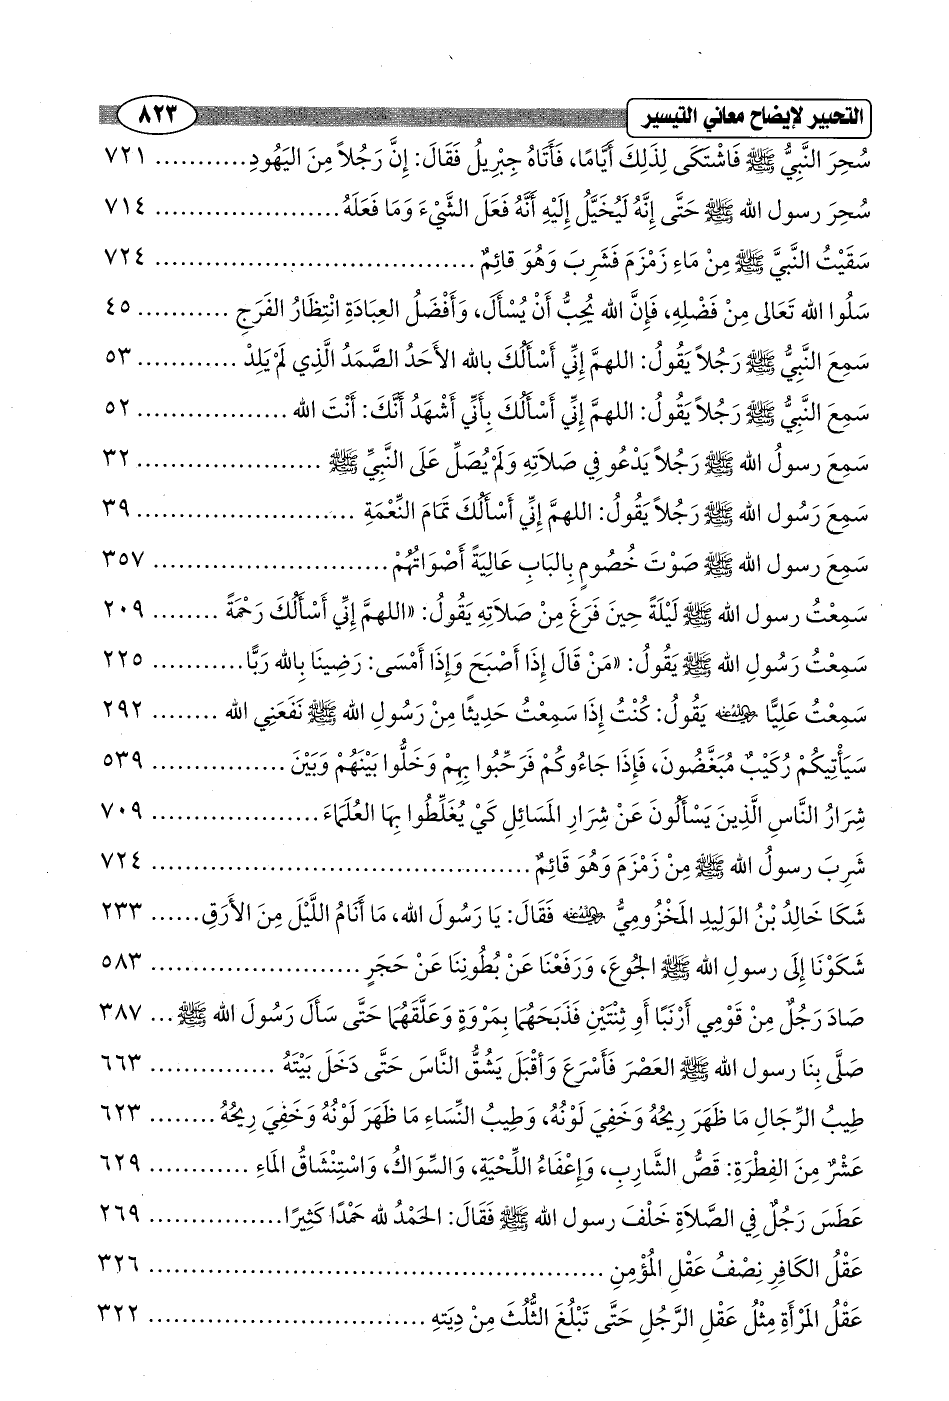 التحبير لإيضاح معاني التيسير ٨٢٣
سُحِرَ النَّبِيُّ ﷺ فَاشْتَكَى لِذَلِكَ أَيَّامًا، فَأَتَاهُ جِبْرِيلُ فَقَالَ: إِنَّ رَجُلاً مِنَ اليَهُودِ........... ٧٢١
سُحِرَ رسول الله ﷺ حَتَّى إِنَّهُ لَيُخَيَّلُ إِلَيْهِ أَنَّهُ فَعَلَ الشَّيْءَ وَمَا فَعَلَهُ...................... ٧١٤
سَقَيْتُ النَّبِيَّ ﷺ مِنْ مَاءِ زَمْزَمَ فَشَرِبَ وَهُوَ قائِمٌ...................................... ٧٢٤
سَلُوا الله تَعَالى مِنْ فَضْلِهِ، فَإِنَّ الله يُحِبُّ أَنْ يُسْأَلَ، وَأَفْضَلُ العِبَادَةِ انْتِظَارُ الفَرَجِ ........... ٤٥
سَمِعَ النَّبِيُّ ﷺ رَجُلاً يَقُولُ: اللهمَّ إِنِّي أَسْأَلُكَ بالله الأَحَدُ الصَّمَدُ الَّذِي لَمْ يَلِدْ ............ ٥٣
سَمِعَ النَّبِيُّ ﷺ رَجُلاً يَقُولُ: اللهمَّ إِنِّي أَسْأَلُكَ بِأَنِّي أَشْهَدُ أَنَّكَ: أَنْتَ الله .................. ٥٢
سَمِعَ رسولُ الله ﷺ رَجُلاً يَدْعُو فِي صَلاَتِهِ وَلَمْ يُصَلِّ عَلَى النَّبِيِّ ﷺ ...................... ٣٢
سَمِعَ رَسُولُ الله ﷺ رَجُلاً يَقُولُ: اللهمَّ إِنِّي أَسْأَلُكَ تمَامَ النِّعْمَةِ .......................... ٣٩
سَمِعَ رسول الله ﷺ صَوْتَ خُصُومٍ بِالبَابِ عَالِيَةً أَصْوَاتُهُمْ............................ ٣٥٧
سَمِعْتُ رسول الله ﷺ لَيْلَةً حِينَ فَرَغَ مِنْ صَلاَتِهِ يَقُولُ: «اللهمَّ إِنِّي أَسْأَلُكَ رَحْمَةً ........ ٢٠٩
سَمِعْتُ رَسُولِ الله ﷺ يَقُولُ: «مَنْ قَالَ إِذَا أَصْبَحَ وَإِذَا أَمْسَى: رَضِينَا بِالله رَبًّا........... ٢٢٥
سَمِعْتُ عَلِيًّا رضي الله عنه يَقُولُ: كُنْتُ إِذَا سَمِعْتُ حَدِيثًا مِنْ رَسُولِ الله ﷺ نَفَعَنِي الله ........ ٢٩٢
سَيَأْتِيكُمْ رُكَيْبٌ مُبَغَّضُونَ، فَإِذَا جَاءُوكُمْ فَرَحِّبُوا بِهِمْ وَخَلُّوا بَيْنَهُمْ وَبَيْنَ................ ٥٣٩
شِرَارُ النَّاسِ الَّذِينَ يَسْأَلُونَ عَنْ شِرَارِ المَسَائِلِ كَيْ يُغَلِّطُوا بِهَا العُلَمَاءَ.................... ٧٠٩
شَرِبَ رسولُ الله ﷺ مِنْ زَمْزَمَ وَهُوَ قَائِمٌ.............................................. ٧٢٤
شَكَا خَالِدُ بْنُ الوَلِيدِ المَخْزُومِيُّ رضي الله عنه فَقَالَ: يَا رَسُولَ الله، مَا أَنَامُ اللَّيْلَ مِنَ الأَرَقِ...... ٢٣٣
شَكَوْنَا إِلَى رسولِ الله ﷺ الجُوعَ، وَرَفَعْنَا عَنْ بُطُونِنَا عَنْ حَجَرٍ......................... ٥٨٣
صَادَ رَجُلٌ مِنْ قَوْمِي أَرْنَبًا أَو ثِنْتَيْنِ فَذَبَحَهُمَا بِمَرْوَةٍ وَعَلَّقَهُمَا حَتَّى سَألَ رَسُولَ الله ﷺ... ٣٨٧
صَلَّى بِنَا رسول الله ﷺ العَصْرَ فَأَسْرَعَ وَأقْبَلَ يَشُقُّ النَّاسَ حَتَّى دَخَلَ بَيْتَهُ ............... ٦٦٣
طِيبُ الرِّجَالِ مَا ظَهَرَ رِيحُهُ وَخَفِيَ لَوْنُهُ، وَطِيبُ النِّسَاءِ مَا ظَهَرَ لَوْنُهُ وَخَفِيَ رِيحُهُ........ ٦٢٣
عَشْرٌ مِنَ الفِطْرَةِ: قَصُّ الشَّارِبِ، وَإِعْفَاءُ اللِّحْيَةِ، وَالسِّوَاكُ، وَاسْتِنْشَاقُ المَاءِ ............ ٦٢٩
عَطَسَ رَجُلٌ فِي الصَّلاَةِ خَلْفَ رسول الله ﷺ فَقَالَ: الحَمْدُ لله حَمْدًا كَثِيرًا................ ٢٦٩
عَقْلُ الكَافِرِ نِصْفُ عَقْلِ المُؤْمِنِ ...................................................... ٣٢٦
عَقْلُ المَرْأَةِ مِثْلُ عَقْلِ الرَّجُلِ حَتَّى تَبْلُغَ الثُّلُثَ مِنْ دِيَتِهِ................................. ٣٢٢